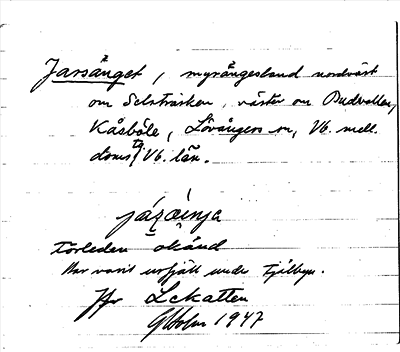 Jarsänget, myrängesland nordväst
om Selsträsken, väster om Budvallen,
Kåsböle, Lövångers sn, Vb. mell.
doms tg Vb. län.
jársd̀enja
förleden okänd
Har varit utfjäll under Fjälbyn.
Jfr Lekatten
G Holm 1947